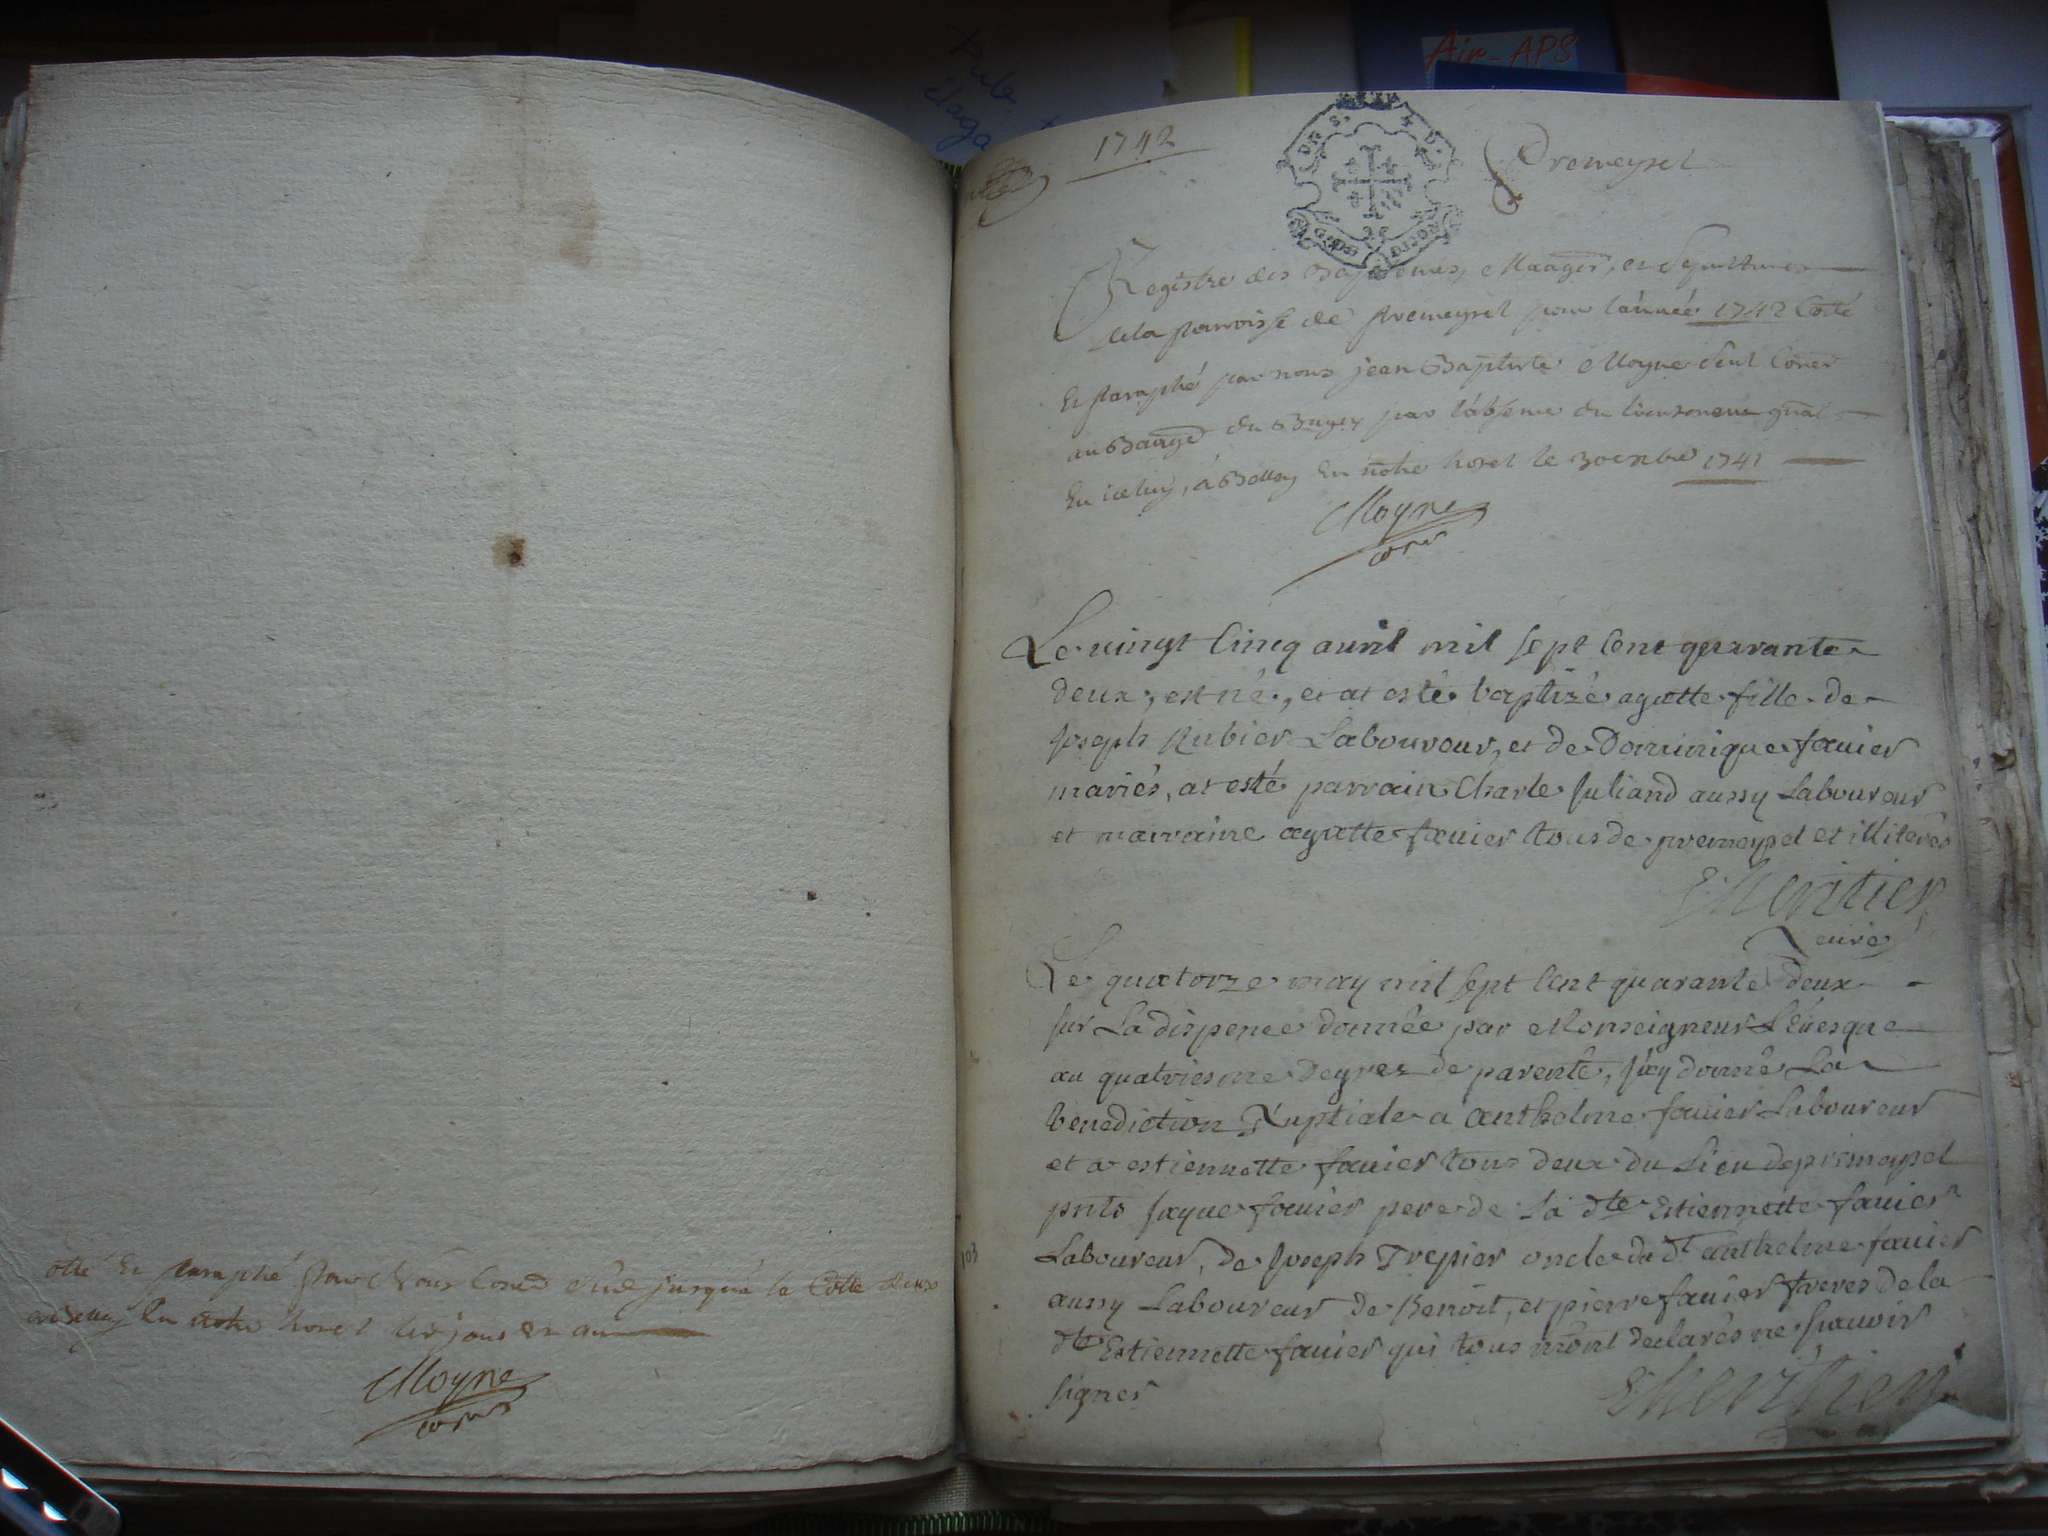 Air-APS
otté Et Paraphé Par Nous Coner Sud jusqua la Cotte deux
a Belley En notre hotel les jour et an
Moyne
coner
1742
Premeysel
Registre des Baptemes, Mariages, et Sepultures
de la Parroisse de Premeysel pour l'année 1742 Coté
Et Paraphé par nous jean Baptiste Moyne Seul Coner
au Baage du Bugey par l'absence du lieutenent gnal
En iceluy, a Belley En notre hotel le 30 cembre 1741
Moyne
coner
Le vingt Cinq avril mil sept Cent quarante
deux, est né, et at esté baptizé agatte fille de
Joseph Rubier Laboureur, et de Dominique favier
mariés, at esté parrain Charle Juliand aussy Laboureur
et marraine agatte favier tous de premeysel et illiterés
Lheritier
Curé
Le quatorze may mil sept Cent quarante deux
sur La dispence donnée par Monseigneur L'Evesque
au quatriesme degrez de parenté, j'ay donné La
benediction Nuptiale a anthelme favier Laboureur
et a estiennette favier tous deux du Lieu de premeysel
pnts jaque favier pere de La dte Estiennette favier
Laboureur, de Joseph Trepier oncle du dt anthelme favier
aussy Laboureur de Benoit, et pierre favier freres de la
dte Estiennette favier qui tous m'ont declarés ne sçavoir
signer
Lheritier
103